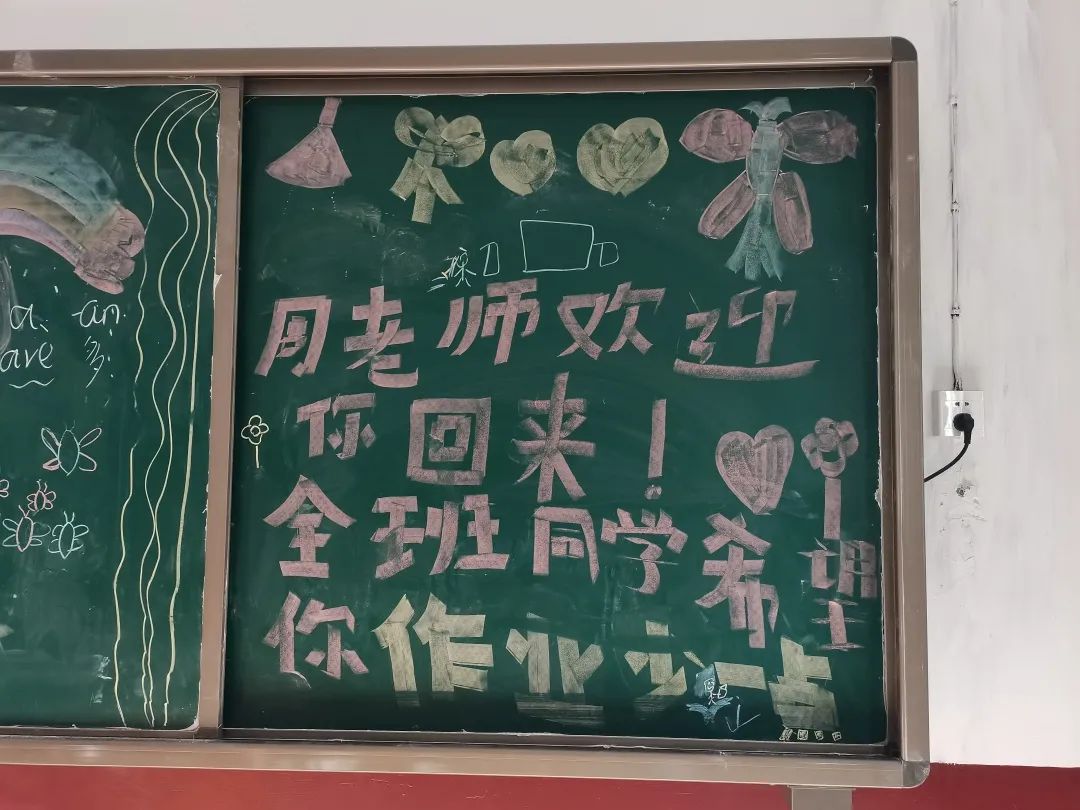 ai an.
are 多:
周老师欢迎
你回来!
全班同学希望
你作业少一点